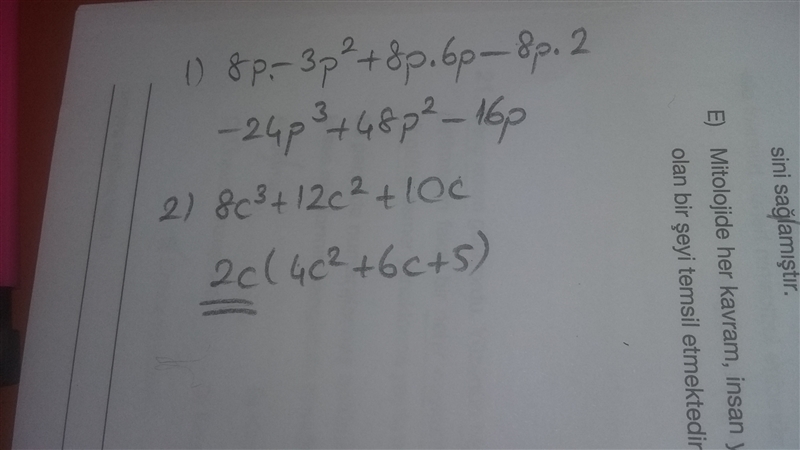 1) 8p.-3p²+8p.6p-8p.2
-24p³+48p²-16p
2) 8c³+12c²+10c
2c(4c²+6c+5)
sini sağlamıştır.
E) Mitolojide her kavram, insan y
olan bir şeyi temsil etmektedir